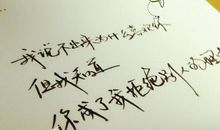 我说不出来为什么喜欢你
但我知道
你成了我拒绝别人的理由